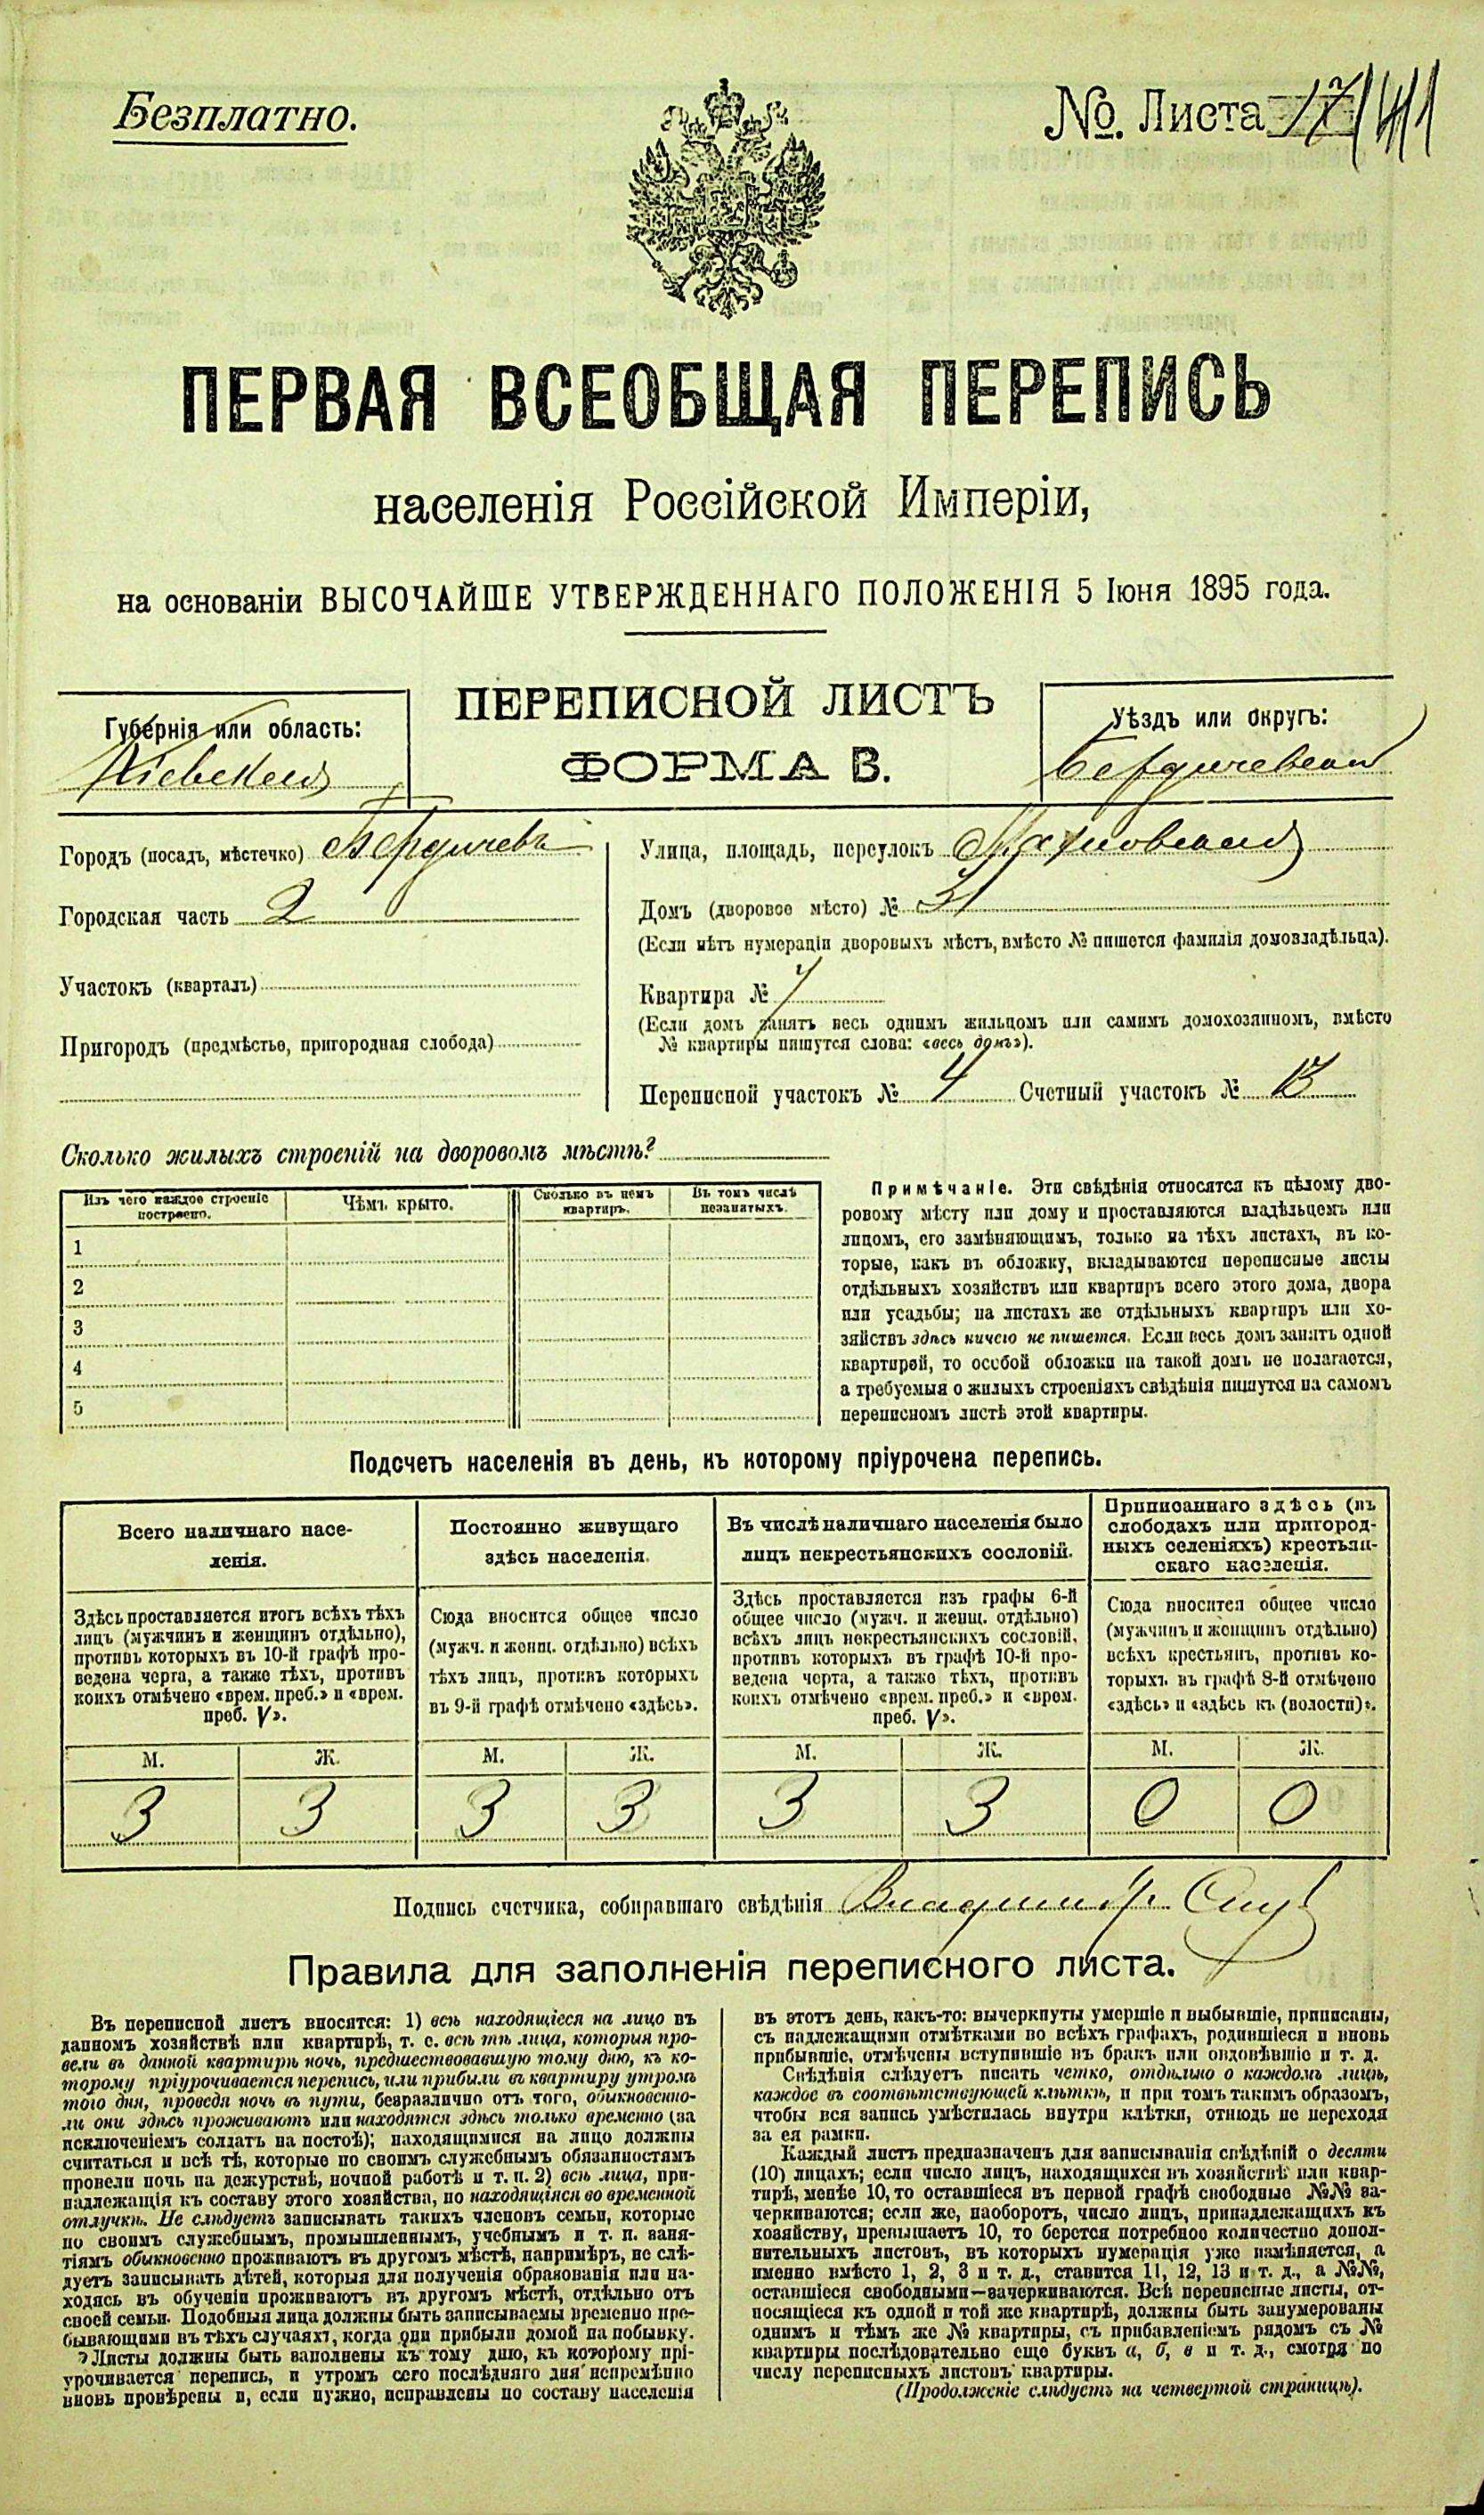 Безплатно.
№. Листа 17/41
ПЕРВАЯ ВСЕОБЩАЯ ПЕРЕПИСЬ
населенія Россійской Имперіи,
на основаніи ВЫСОЧАЙШЕ УТВЕРЖДЕННАГО ПОЛОЖЕНІЯ 5 Іюня 1895 года.
ПЕРЕПИСНОЙ ЛИСТЪ
ФОРМА В.
Губернія или область:
Кіевская
Уѣздъ или округъ:
Бердичевскій
Городъ (посадъ, мѣстечко) Бердичевъ
Городская часть 2
Участокъ (кварталъ)
Пригородъ (предмѣстье, пригородная слобода)
Улица, площадь, переулокъ Махновская
Домъ (дворовое мѣсто) №
(Если нѣтъ нумераціи дворовыхъ мѣстъ, вмѣсто № пишется фамилія домовладѣльца).
Квартира №
(Если домъ занятъ весь однимъ жильцомъ или самимъ домохозяиномъ, вмѣсто
№ квартиры пишутся слова: «весь домъ»).
Переписной участокъ № 4 Счетный участокъ № 13
Сколько жилыхъ строеній на дворовомъ мѣстѣ?
Изъ чего каждое строеніе построено.
Чѣмъ крыто.
Сколько въ немъ квартиръ.
Въ томъ числѣ незанятыхъ.
1
2
3
4
5
Примѣчаніе. Эти свѣдѣнія относятся къ цѣлому дво-
ровому мѣсту или дому и проставляются владѣльцемъ или
лицомъ, его замѣняющимъ, только на тѣхъ листахъ, въ ко-
торые, какъ въ обложку, вкладываются переписные листы
отдѣльныхъ хозяйствъ или квартиръ всего этого дома, двора
или усадьбы; на листахъ же отдѣльныхъ квартиръ или хо-
зяйствъ здѣсь ничего не пишется. Если весь домъ занятъ одной
квартирой, то особой обложки на такой домъ не полагается,
а требуемыя о жилыхъ строеніяхъ свѣдѣнія пишутся на самомъ
переписномъ листѣ этой квартиры.
Подсчетъ населенія въ день, къ которому пріурочена перепись.
Всего наличнаго насе-
ленія.
Постоянно живущаго
здѣсь населенія.
Въ числѣ наличнаго населенія было
лицъ некрестьянскихъ сословій.
Приписаннаго здѣсь (въ
слободахъ или пригород-
ныхъ селеніяхъ) крестьян-
скаго населенія.
Здѣсь проставляется итогъ всѣхъ тѣхъ
лицъ (мужчинъ и женщинъ отдѣльно),
противъ которыхъ въ 10-й графѣ про-
ведена черта, а также тѣхъ, противъ
коихъ отмѣчено «врем. преб.» и «врем.
преб. V».
Сюда вносится общее число
(мужч. и женщ. отдѣльно) всѣхъ
тѣхъ лицъ, противъ которыхъ
въ 9-й графѣ отмѣчено «здѣсь».
Здѣсь проставляется изъ графы 6-й
общее число (мужч. и женщ. отдѣльно)
всѣхъ лицъ некрестьянскихъ сословій,
противъ которыхъ въ графѣ 10-й про-
ведена черта, а также тѣхъ, противъ
коихъ отмѣчено «врем. преб.» и «врем.
преб. V».
Сюда вносится общее число
(мужчинъ и женщинъ отдѣльно)
всѣхъ крестьянъ, противъ ко-
торыхъ въ графѣ 8-й отмѣчено
«здѣсь» и «здѣсь къ (волости)».
М. Ж. М. Ж. М. Ж. М. Ж.
3 3 3 3 3 3 0 0
Подпись счетчика, собиравшаго свѣдѣнія Владиміръ
Правила для заполненія переписного листа.
Въ переписной листъ вносятся: 1) всѣ находящіеся на лицо въ
данномъ хозяйствѣ или квартирѣ, т. е. всѣ тѣ лица, которыя про-
вели въ данной квартирѣ ночь, предшествовавшую тому дню, къ ко-
торому пріурочивается перепись, или прибыли въ квартиру утромъ
того дня, проведя ночь въ пути, безразлично отъ того, обыкновенно-
ли они здѣсь проживаютъ или находятся здѣсь только временно (за
исключеніемъ солдатъ на постоѣ); находящимися на лицо должны
считаться и всѣ тѣ, которые по своимъ служебнымъ обязанностямъ
провели ночь на дежурствѣ, ночной работѣ и т. п. 2) всѣ лица, при-
надлежащія къ составу этого хозяйства, но находящіяся во временной
отлучкѣ. Не слѣдуетъ записывать такихъ членовъ семьи, которые
по своимъ служебнымъ, промышленнымъ, учебнымъ и т. п. заня-
тіямъ обыкновенно проживаютъ въ другомъ мѣстѣ, напримѣръ, не слѣ-
дуетъ записывать дѣтей, которыя для полученія образованія или на-
ходясь въ обученіи проживаютъ въ другомъ мѣстѣ, отдѣльно отъ
своей семьи. Подобныя лица должны быть записываемы временно пре-
бывающими въ тѣхъ случаяхъ, когда они прибыли домой на побывку.
Листы должны быть заполнены къ тому дню, къ которому прі-
урочивается перепись, и утромъ сего послѣдняго дня непремѣнно
вновь провѣрены и, если нужно, исправлены по составу населенія
въ этотъ день, какъ-то: вычеркнуты умершіе и выбывшіе, приписаны,
съ надлежащими отмѣтками во всѣхъ графахъ, родившіеся и вновь
прибывшіе, отмѣчены вступившіе въ бракъ или овдовѣвшіе и т. д.
Свѣдѣнія слѣдуетъ писать четко, отдѣльно о каждомъ лицѣ,
каждое въ соотвѣтствующей клѣткѣ, и при томъ такимъ образомъ,
чтобы вся запись умѣстилась внутри клѣтки, отнюдь не переходя
за ея рамки.
Каждый листъ предназначенъ для записыванія свѣдѣній о десяти
(10) лицахъ; если число лицъ, находящихся въ хозяйствѣ или квар-
тирѣ, менѣе 10, то оставшіеся въ первой графѣ свободные №№ за-
черкиваются; если же, наоборотъ, число лицъ, принадлежащихъ къ
хозяйству, превышаетъ 10, то берется потребное количество допол-
нительныхъ листовъ, въ которыхъ нумерація уже измѣняется, а
именно вмѣсто 1, 2, 3 и т. д., ставится 11, 12, 13 и т. д., а №№,
оставшіеся свободными—зачеркиваются. Всѣ переписные листы, от-
носящіеся къ одной и той же квартирѣ, должны быть занумерованы
однимъ и тѣмъ же № квартиры, съ прибавленіемъ рядомъ съ №
квартиры послѣдовательно еще буквъ а, б, в и т. д., смотря по
числу переписныхъ листовъ квартиры.
(Продолженіе слѣдуетъ на четвертой страницѣ).